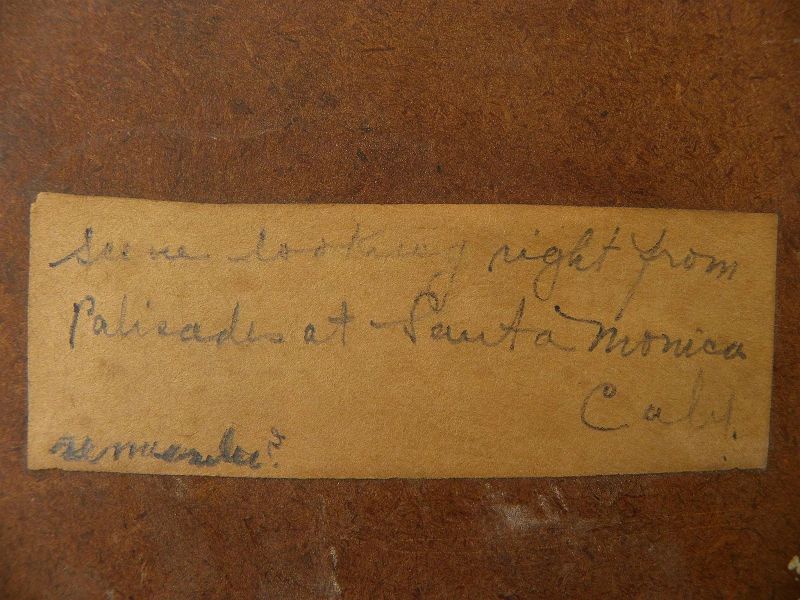 Scene looking right from
Palisades at Santa Monica
Calif.